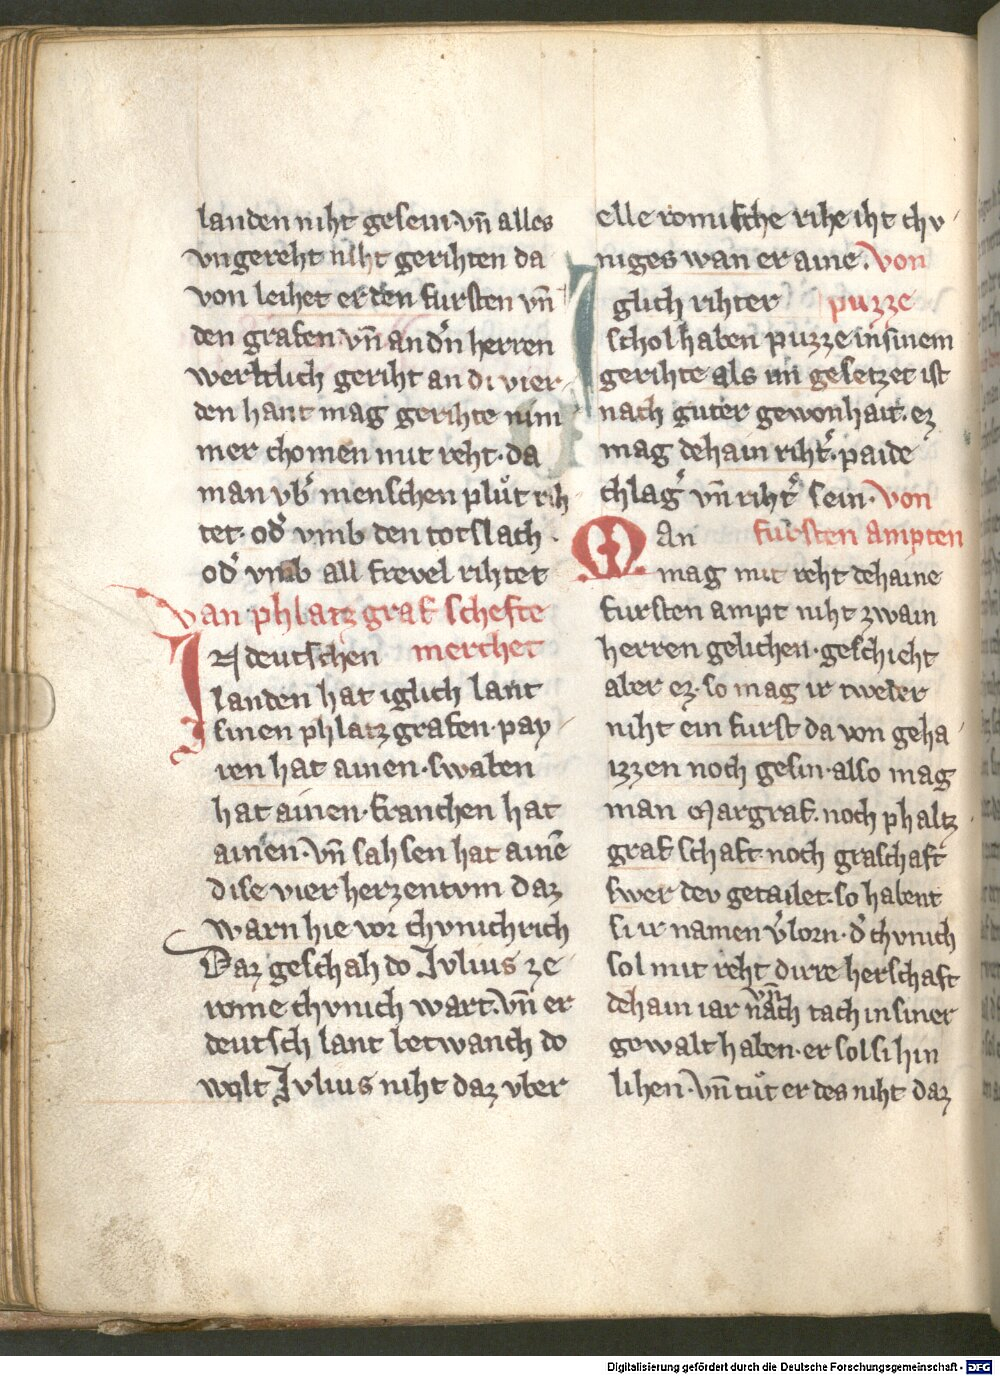 landen niht gesein· vn̄ alles
vngereht niht gerihten da
von leihet er den fursten vn̄
den grafen vn̄ an dn̄ herren
werltlich geriht an di vier-
den hant mag gerihte nim
mer chomen mit reht· da
man vb͛ menschen plůt rih
tet· od͛ vmb den totslach·
od͛ vmb all frevel rihtet
van phlatzgraf schefte
IN deutschen merchet
landen hat iglich lant
sinen phlatzgrafen· pay-
ren hat ainen· swaben
hat ainen· franchen hat
ainen· vn̄ sahsen hat ainē
dise vier herzentvm daz
warn hie vor chvnichrich
Daz geschah do Ivlius ze
rome chvnich wart· vn̄ er
deutsch lant betwanch do
wolt Ivlius niht daz vber
elle romische rihe iht chv-
niges wan er aine· von
Iglich rihter puzze
schol haben puzze in sinem
gerihte als im gesetzet ist
nach guter gewonhait· ez
mag dehain riht͛· paide
chlag͛ vn̄ riht͛ sein· von
Man fursten ampten
mag mit reht dehaine
fursten ampt niht zwain
herren gelichen· geschieht
aber ez· so mag ir tweder
niht ein furst da von geha-
izzen noch gesin· also mag
man margraf· noch phaltz
grafschaft noch graschaft
swer dev getailet· so habent
si ir namen v͛lorn· d͛ chvnich
sol mit reht dirre herschaft
dehain iar vn̄ nach tach in siner
gewalt haben· er sol si hin
lihen· vn̄ tůt er des niht daz
Digitalisierung gefördert durch die Deutsche Forschungsgemeinschaft - DFG